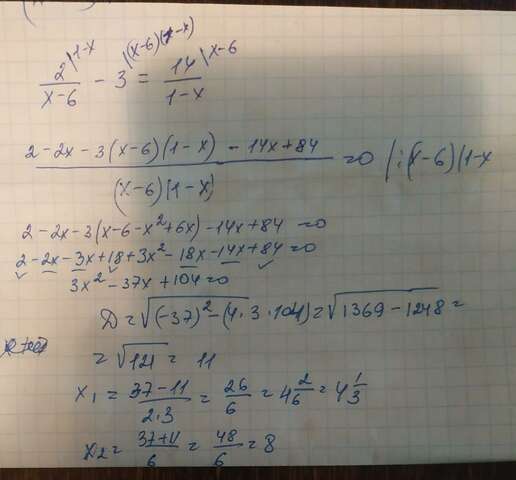 2 |1-x (x-6)(1-x) 14 |x-6
2/(x-6) - 3 = 14/(1-x)
(2-2x-3(x-6)(1-x)-14x+84)/((x-6)(1-x)) = 0 |:(x-6)(1-x
2-2x-3(x-6-x²+6x)-14x+84=0
2-2x-3x+18+3x²-18x-14x+84=0
3x²-37x+104=0
D=√((-37)²-(4·3·104)=√(1369-1248)=
=√121=11
x₁=(37-11)/(2·3)=26/6=4 2/6=4 1/3
x₂=(37+11)/6=48/6=8